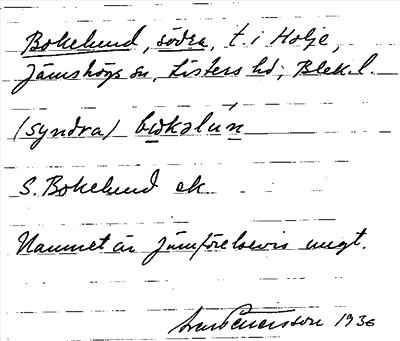 Bokelund, södra, t. i Holje,
Jämshögs sn, Listers hd, Blek. l.
(syndra) bokəlún
S. Bokelund ek
Namnet är jämförelsevis ungt.
1936